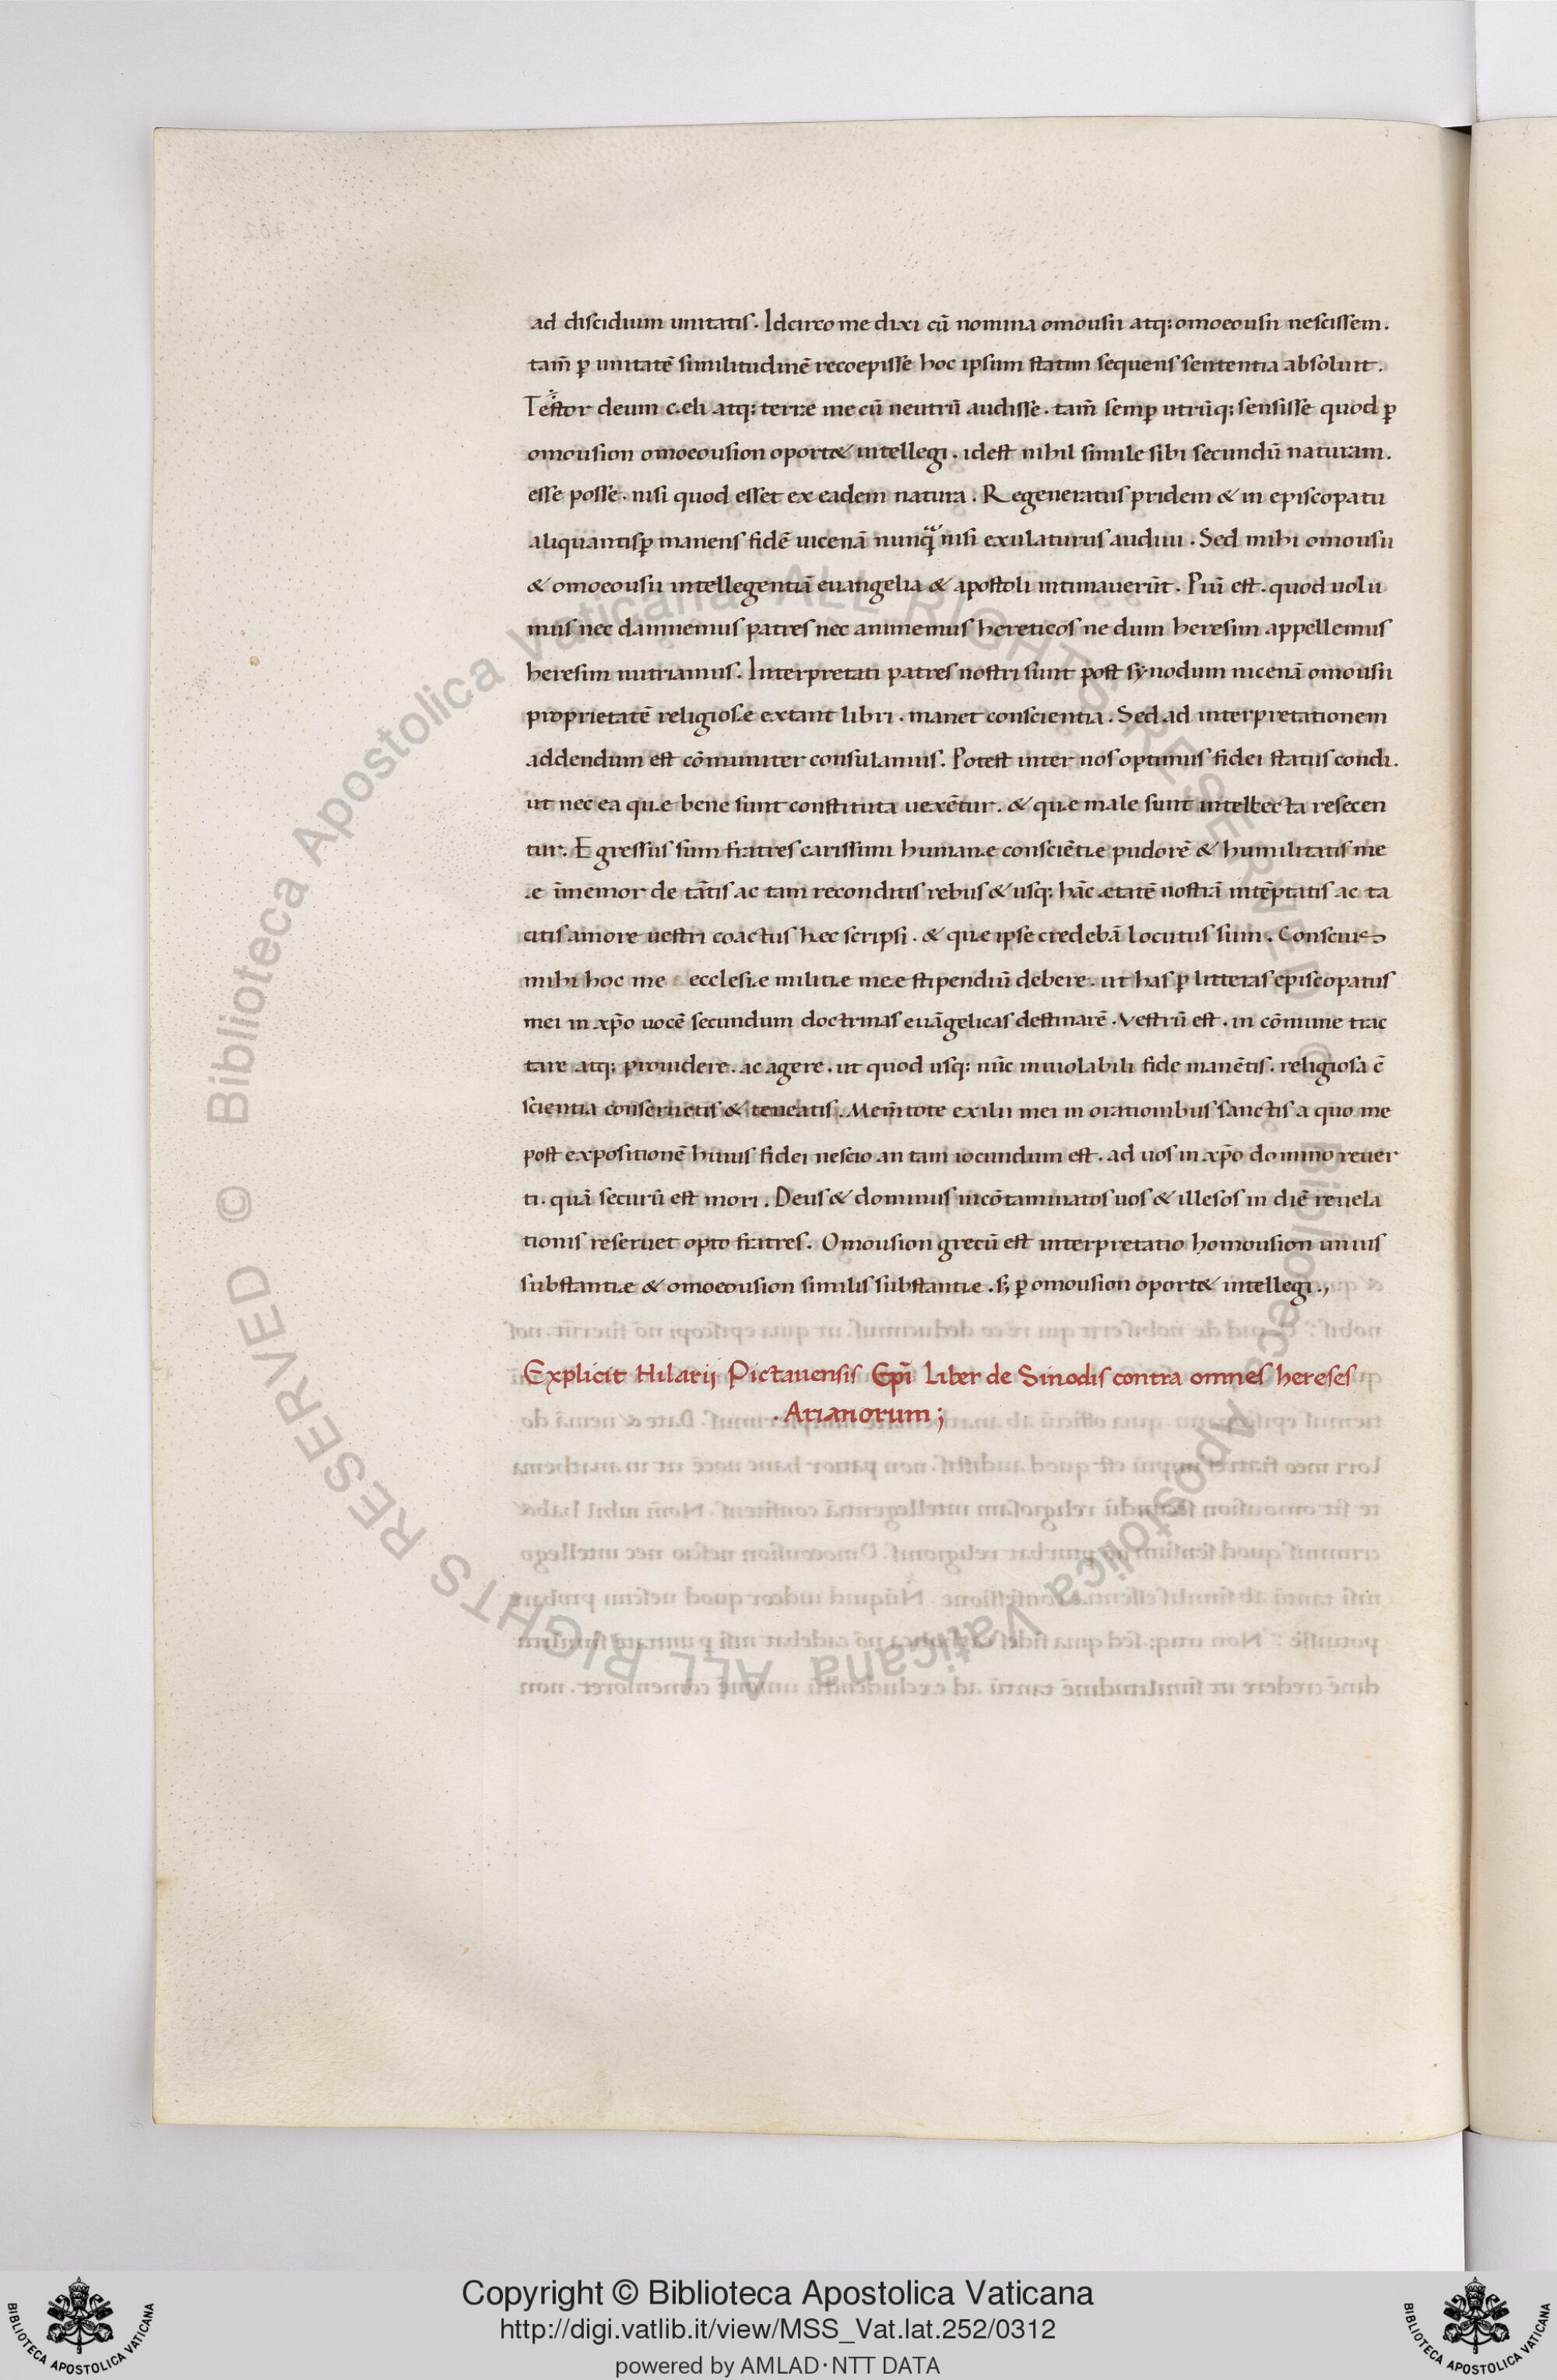 ad discidium unitatis. Idcirco me dixi cū nomina omousii atq; omoeousii nescissem.
tam̄ ꝑ unitatē similitudinē recoepisse hoc ipsum statim sequens sententia absoluit.
Testor deum cęli atq; terrę me cū neutrū audisse. tam̄ semꝑ utrūq; sensisse quod ꝑ
omousion omoeousion oport& intellegi. idest nihil simile sibi secundū naturam.
esse posse. nisi quod esset ex eadem natura. Regeneratus pridem & in episcopatu
aliquantisꝑ manens fidē nicenā nunq̄ nisi exulaturus audiui. Sed mihi omousii
& omoeousii intellegentiā euangelia & apostoli intimauerūt. Piū est. quod uolu
mus nec damnemus patres nec animemus hereticos ne dum heresim appellemus
heresim nutriamus. Interpretati patres nostri sunt post synodum nicenā omousii
proprietatē religiosę extant libri. manet conscientia. Sed ad interpretationem
addendum est cōmuniter consulamus. Potest inter nos optimus fidei status condi.
ut nec ea quę bene sunt constituta uexētur. & quę male sunt intellecta resecen
tur. Egressus sum fratres carissimi humanę consciētię pudorē & humilitatis me
ę īmemor de tātis ac tam reconditis rebus & usq; hāc ętatē nostrā intēptatis ac ta
citis amore uestri coactus hęc scripsi. & quę ipse credebā locutus sum. Conscius
mihi hoc me ecclesię militię meę stipendiū debere. ut has ꝑ litteras episcopatus
mei in xp̄o uocē secundum doctrinas euāgelicas destinarē. Vestrū est. in cōmune trac
tare atq; prouidere. ac agere. ut quod usq; nūc inuiolabili fide manētis. religiosa c̄
scientia conseruetis & teneatis. Mem̄tote exilii mei in orationibus sanctis a quo me
post expositionē huius fidei nescio an tam iocundum est. ad uos in xp̄o domino reuer
ti. quā securū est mori. Deus & dominus incōtaminatos uos & illesos in diē reuela
tionis reseruet opto fratres. Omousion grecū est interpretatio homousion unius
substantię & omoeousion similis substantię. s; ꝑ omousion oport& intellegi.,
Explicit Hilarij Pictauensis Ep̄i Liber de Sinodis contra omnes hereses
. Arianorum ;
© Biblioteca Apostolica Vaticana ALL RIGHTS RESERVED © Biblioteca Apostolica Vaticana ALL RIGHTS RESERVED
Copyright © Biblioteca Apostolica Vaticana
http://digi.vatlib.it/view/MSS_Vat.lat.252/0312
powered by AMLAD·NTT DATA
BIBLIOTECA APOSTOLICA VATICANA
BIBLIOTECA APOSTOLICA VATICANA